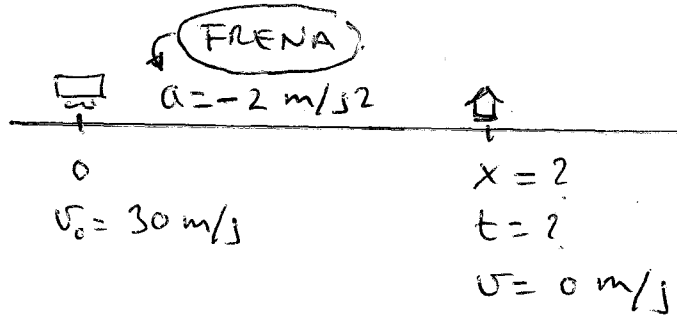 FRENA
a = -2 m/s2
0
x = ?
v₀ = 30 m/s
t = ?
v = 0 m/s